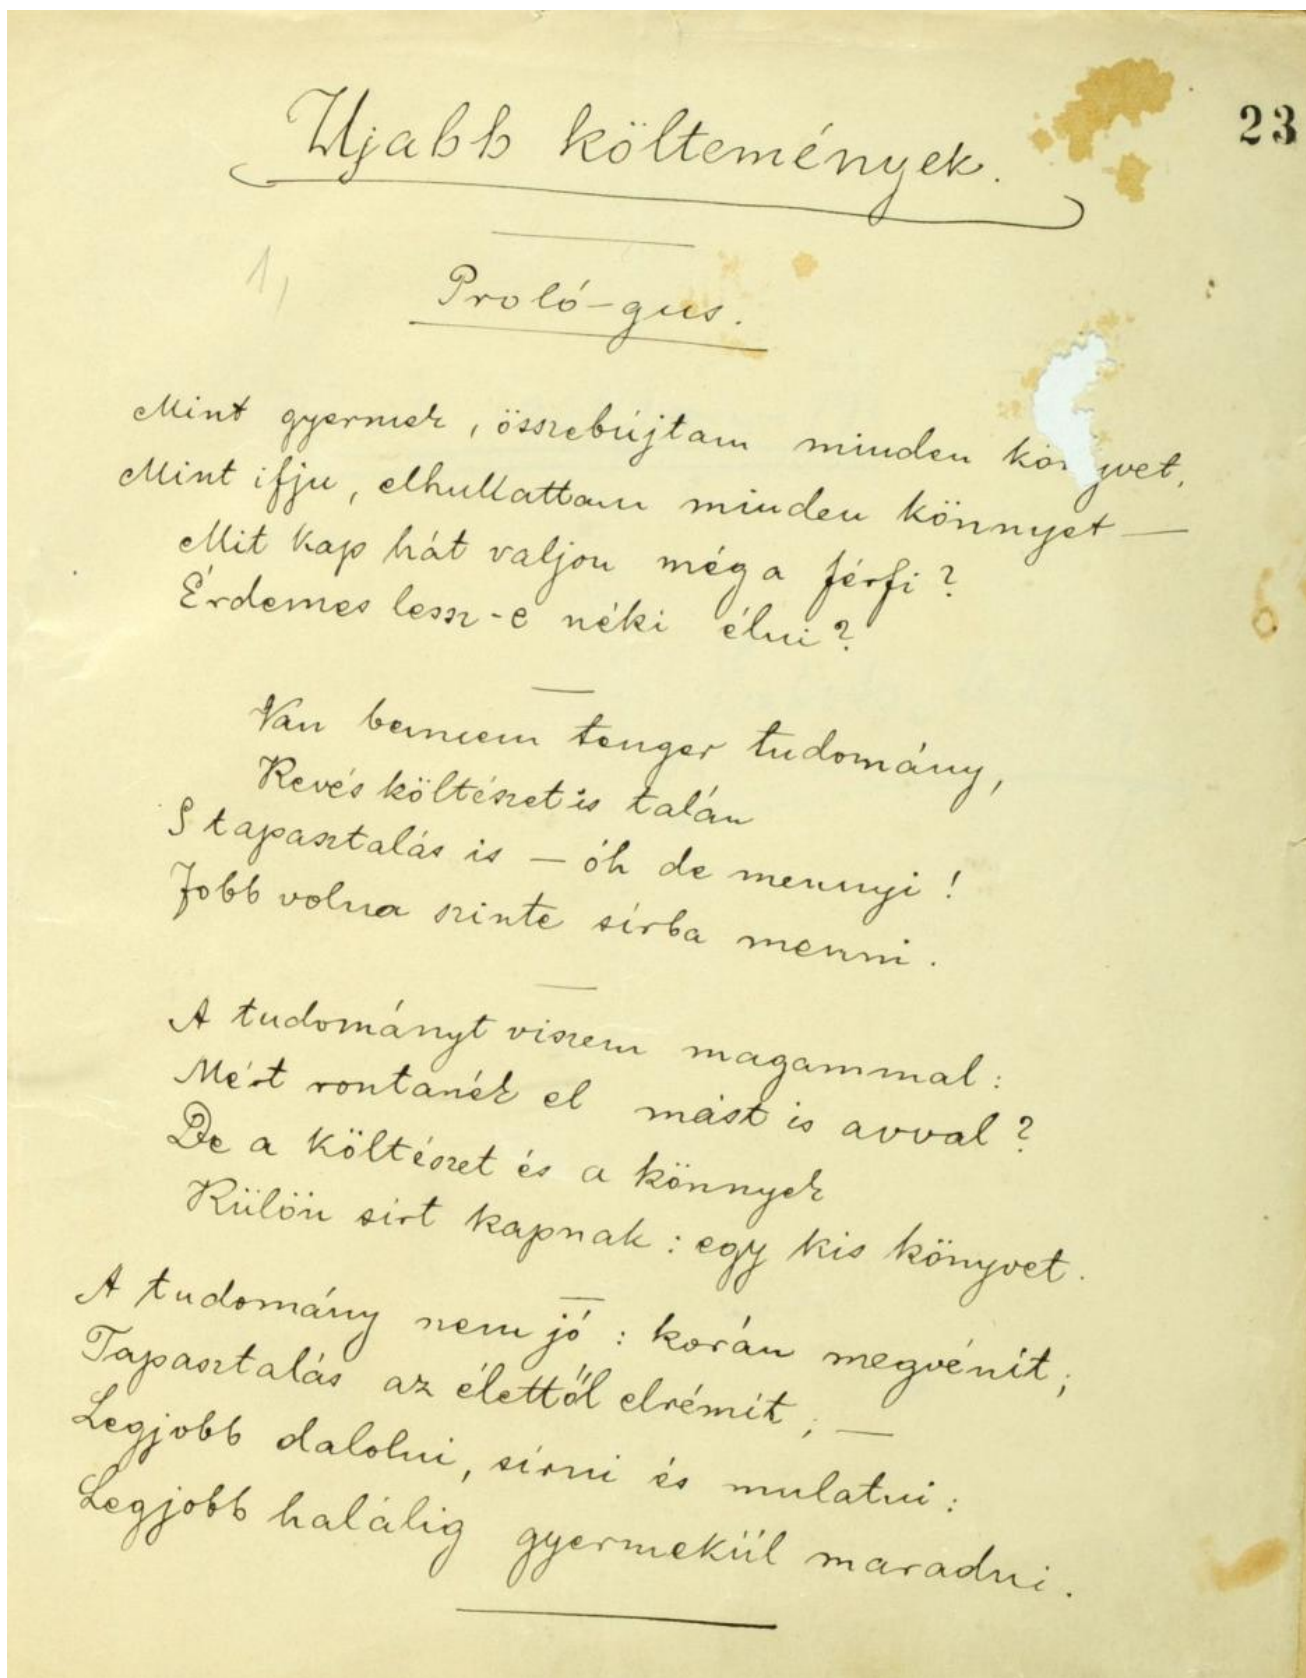 Ujabb költemények.
23
1,
Proló-gus.
Mint gyermek, összebújtam minden könyvet,
Mint ifju, elhullattam minden könnyet —
Mit kap hát valjon még a férfi?
Érdemes lessz-e néki élni?
Van bennem tenger tudomány,
Kevés költészet is talán
S tapasztalás is — óh de mennyi!
Jobb volna szinte sírba menni.
A tudományt viszem magammal:
Mért rontanék el mást is avval?
De a költészet és a könnyek
Külön sírt kapnak: egy kis könyvet.
A tudomány nem jó: korán megvénit;
Tapasztalás az élettől elrémit, —
Legjobb dalolni, sírni és mulatni:
Legjobb halálig gyermekül maradni.